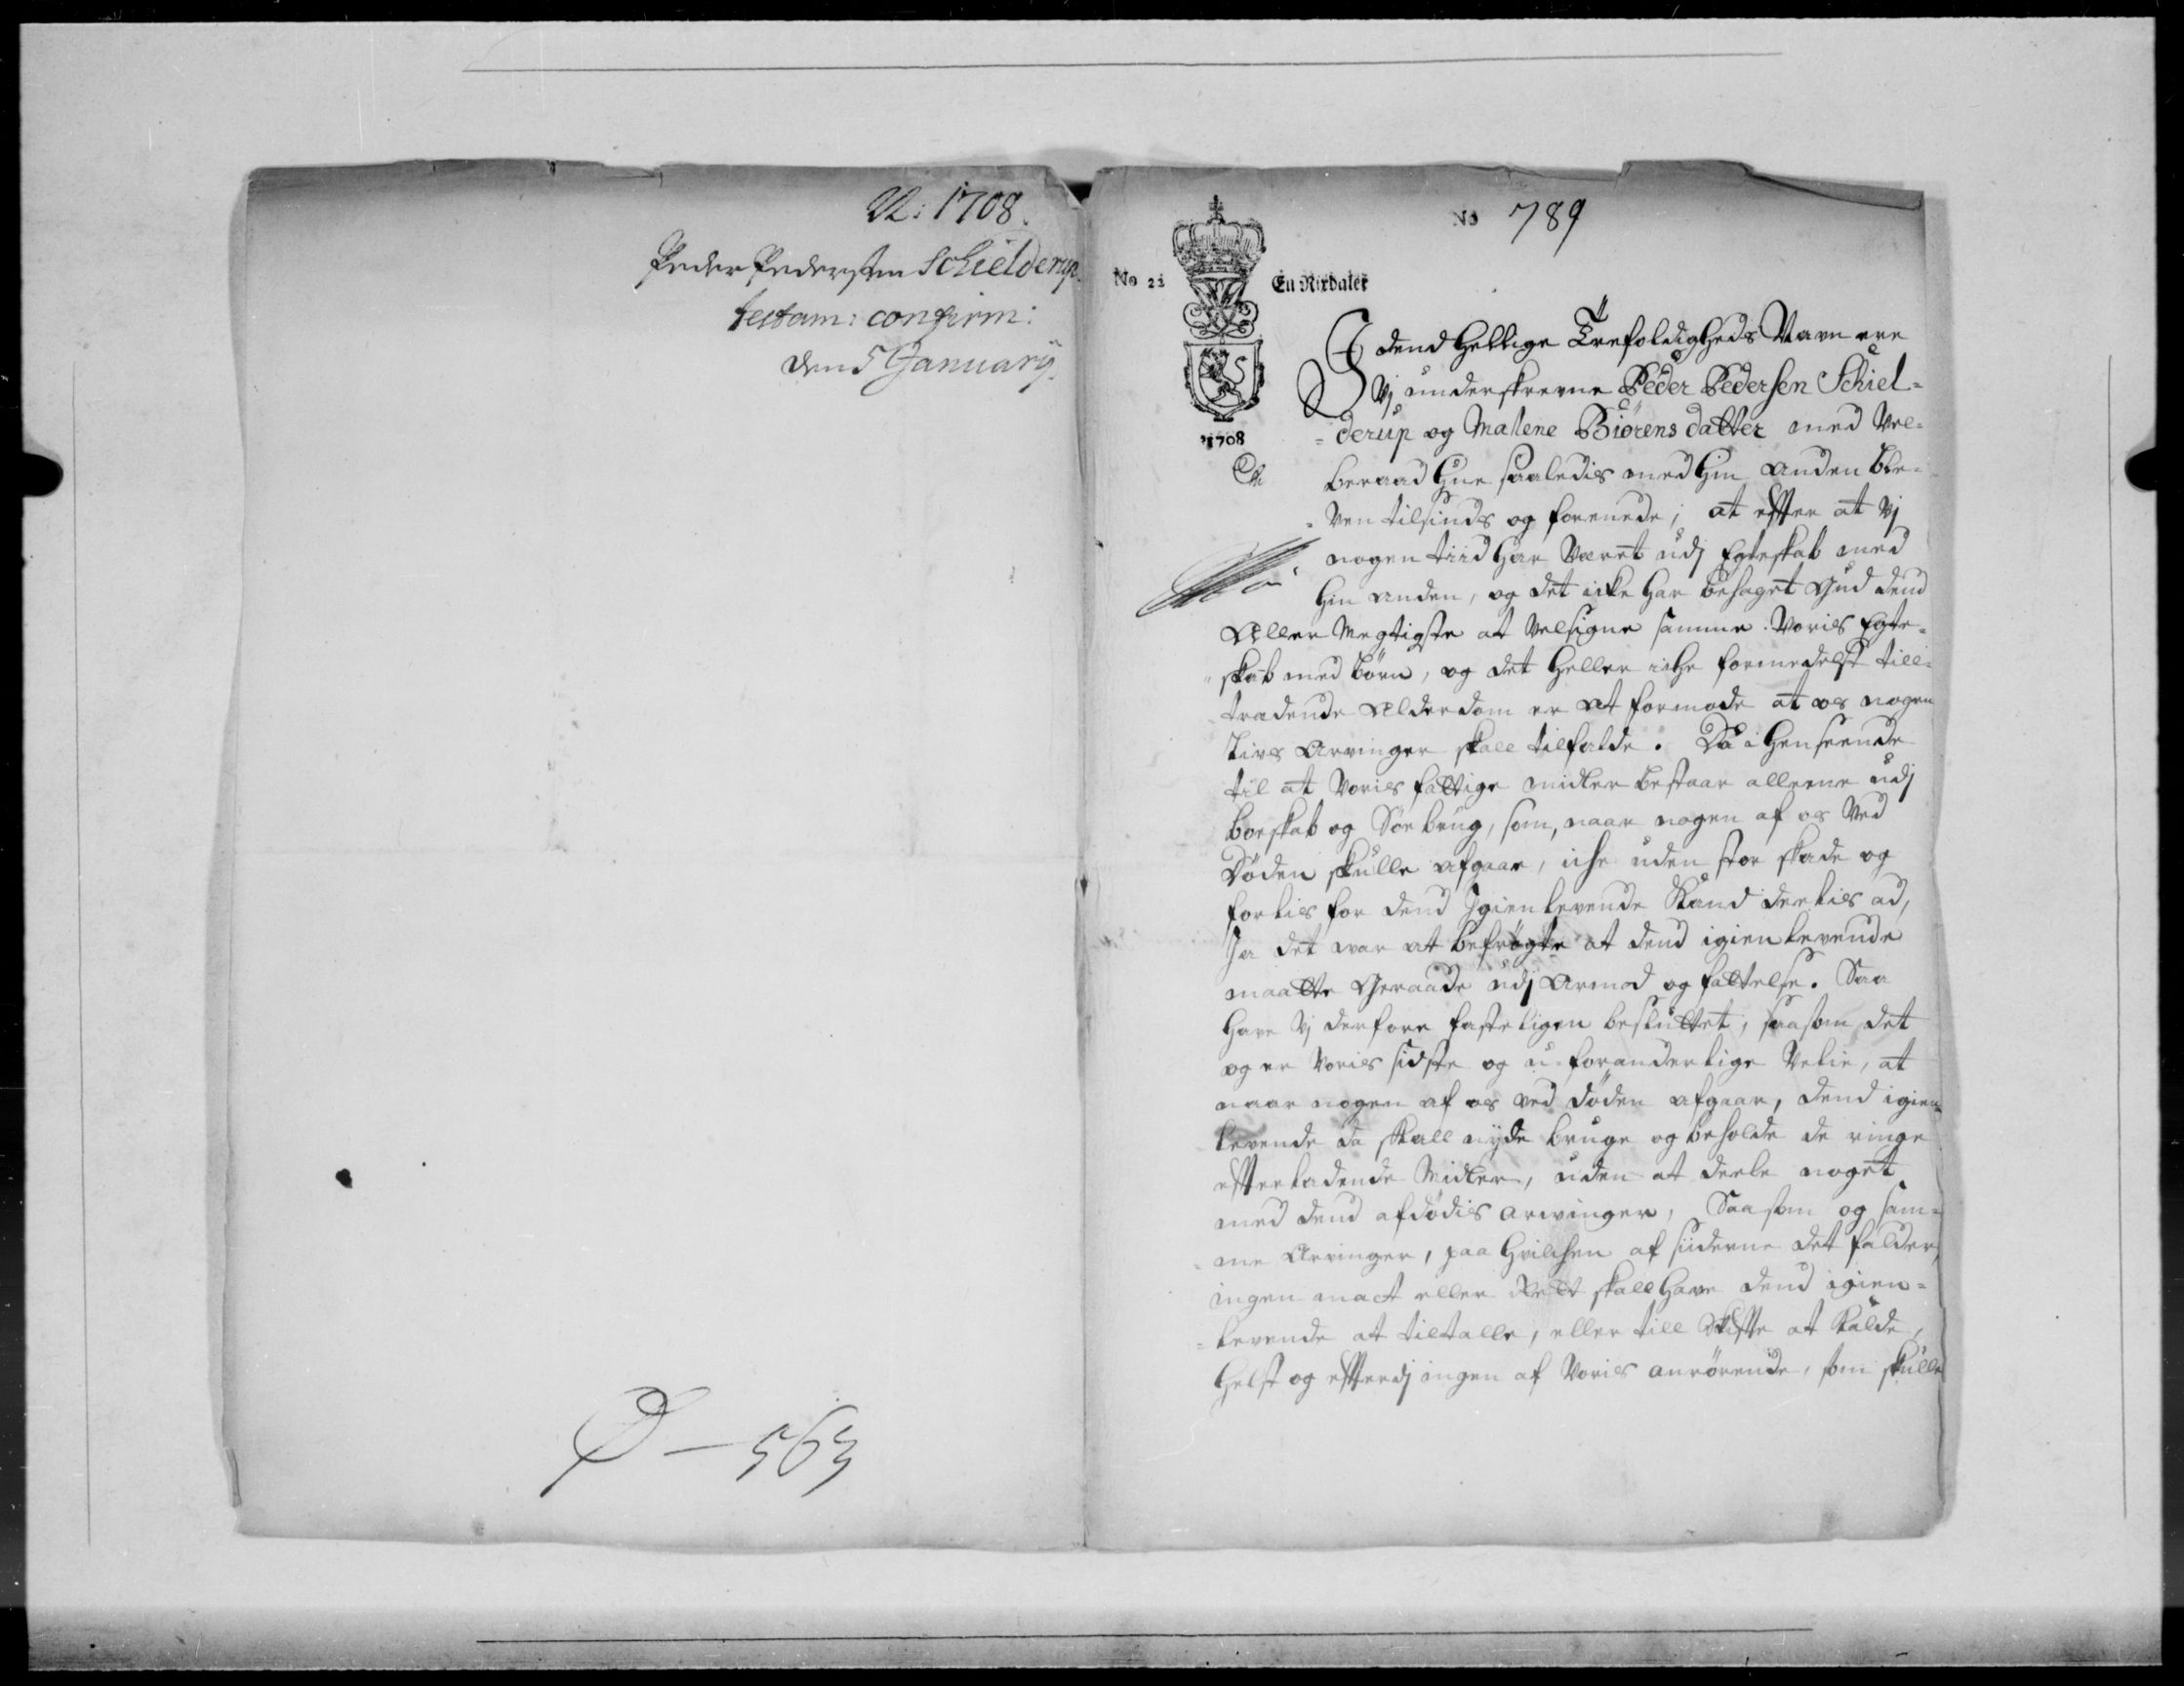 1708.
Peder Pedersen Schielderup
testam: confirm:
den 5 January.
D — 563
No 789
No 21 En Rixdaler
1708
I dend Hellige Trefoldigheds Nafn ere
Vj underskrevne Peder Pedersen Schiel-
-derup og Malene Biørens datter med Vel-
beraad Hue saaledis med hin anden ble-
-ven tilsinds og forenede; at effter at Vj
nogen tiid har Været udj Egteskab med
hin anden, og det icke har behaget Gud dend
Aller Megtigste at Velsigne samme Voris Egte-
skab med børn, og det heller iche formedelst till-
trædende Alderdom er at formode at os nogen
Livs Arvinger skall tilfalde. Da i henseende
til at Voris fattige midler bestaar alleene udj
boeskab og Søe brug, som, naar nogen af os Ved
Døden skulle afgaae, iche uden stor skade og
forlis for dend Igienlevende Kand deelis ad,
Ja det var at befrøgte at dend igienlevende
maatte Geraade udj Armod og fattelse. Saa
have Vj derfore fasteligen besluttet, saasom det
og er Voris sidste og u-foranderlige Velie, at
naar nogen af os ved døden afgaar, dend igien-
levende da skall nyde bruge og beholde de ringe
effterladende Midler, uden at deele noget
med dend afdødis arvinger, Saasom og sam-
me Arvinger, paa hvilchen af siiderne det falder,
ingen mact eller Rett skall have dend igien-
-levende at tiltalle, eller till Skiffte at Kalde,
helst og effterdj ingen af Voris anrørende, som skulle